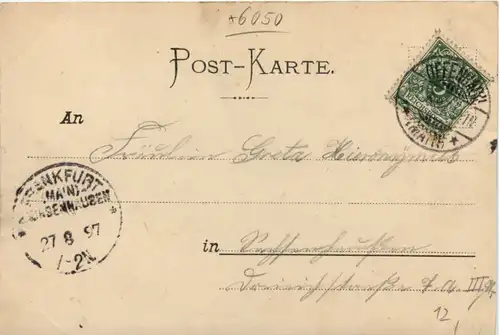 *6050
POST-KARTE.
OFFENBACH
(MAIN) *
An
Fräulein Greta Hieronymus
FRANKFURT
(MAIN)
* SACHSENHAUSEN *
27 8 97
1-2N
in Sachsenhausen
Dreieichstraße 7a III St
12